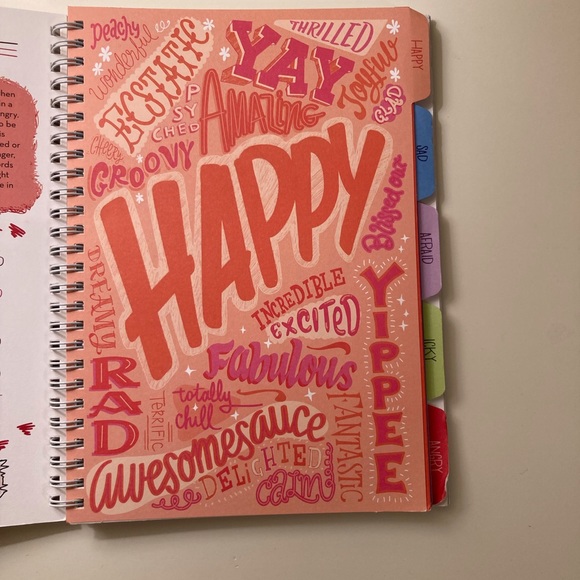 Peachy
wonderful
ECSTATIC
YAY
THRILLED
Joyful
GLAD
cheery
PSYCHED
AMAZING
GROOVY
HAPPY
Blissed out
DREAMY
INCREDIBLE
EXCITED
YIPPEE
Fabulous
RAD
TERRIFIC
totally
chill
FANTASTIC
awesomesauce
DELIGHTED
calm
HAPPY
SAD
AFRAID
ICKY
ANGRY
hen
in a
ngry.
o be
is
ed or
nger,
ords
ght
e in